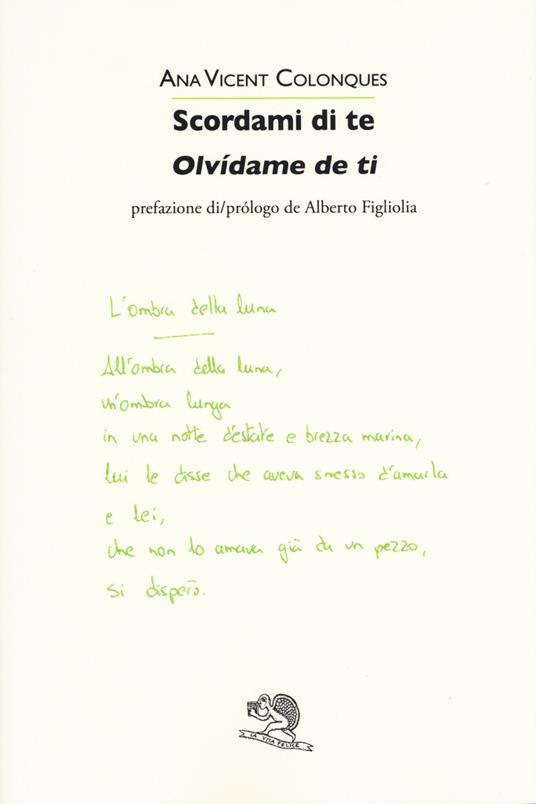 Ana Vicent Colonques
Scordami di te
Olvídame de ti
prefazione di/prólogo de Alberto Figliolia
L'ombra della luna
All'ombra della luna,
un'ombra lunga
in una notte d'estate e brezza marina,
lui le disse che aveva smesso d'amarla
e lei,
che non lo amava già da un pezzo,
si disperò.
LA VITA FELICE